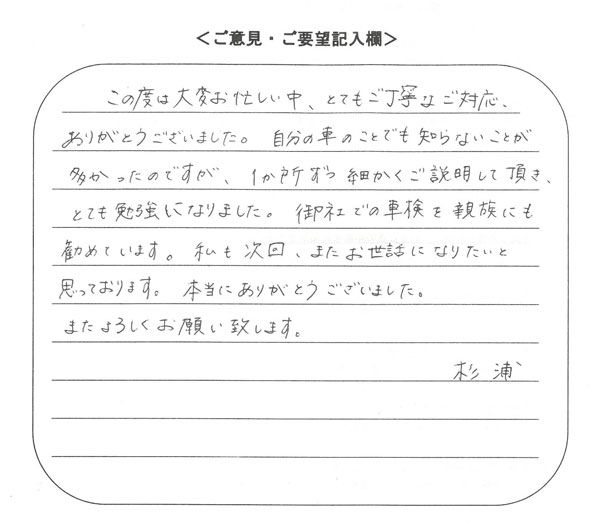 ＜ご意見・ご要望記入欄＞
この度は大変お忙しい中、とてもご丁寧なご対応、
ありがとうございました。自分の車のことでも知らないことが
多かったのですが、1か所ずつ細かくご説明して頂き、
とても勉強になりました。御社での車検を親族にも
勧めています。私も次回、またお世話になりたいと
思っております。本当にありがとうございました。
またよろしくお願い致します。
杉浦